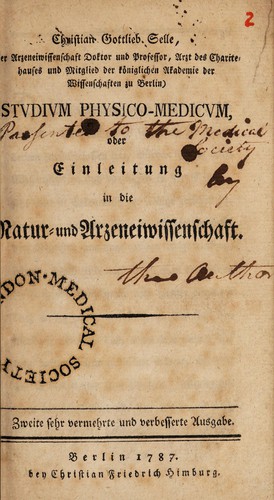 2
Christian Gottlieb Selle,
er Arzeneiwissenschaft Doktor und Professor, Arzt des Charite-
hauses und Mitglied der königlichen Akademie der
Wissenschaften zu Berlin)
STVDIVM PHYSICO-MEDICVM,
Presented to the Medical
Society
oder
Einleitung
by
in die
Natur- und Arzeneiwissenschaft.
the Author
NDON-MEDICAL
SOCIETY
Zweite sehr vermehrte und verbesserte Ausgabe.
Berlin 1787.
bey Christian Friedrich Himburg.